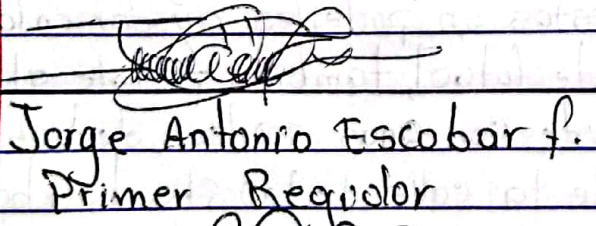 Jorge Antonio Escobar f.
Primer Regidor